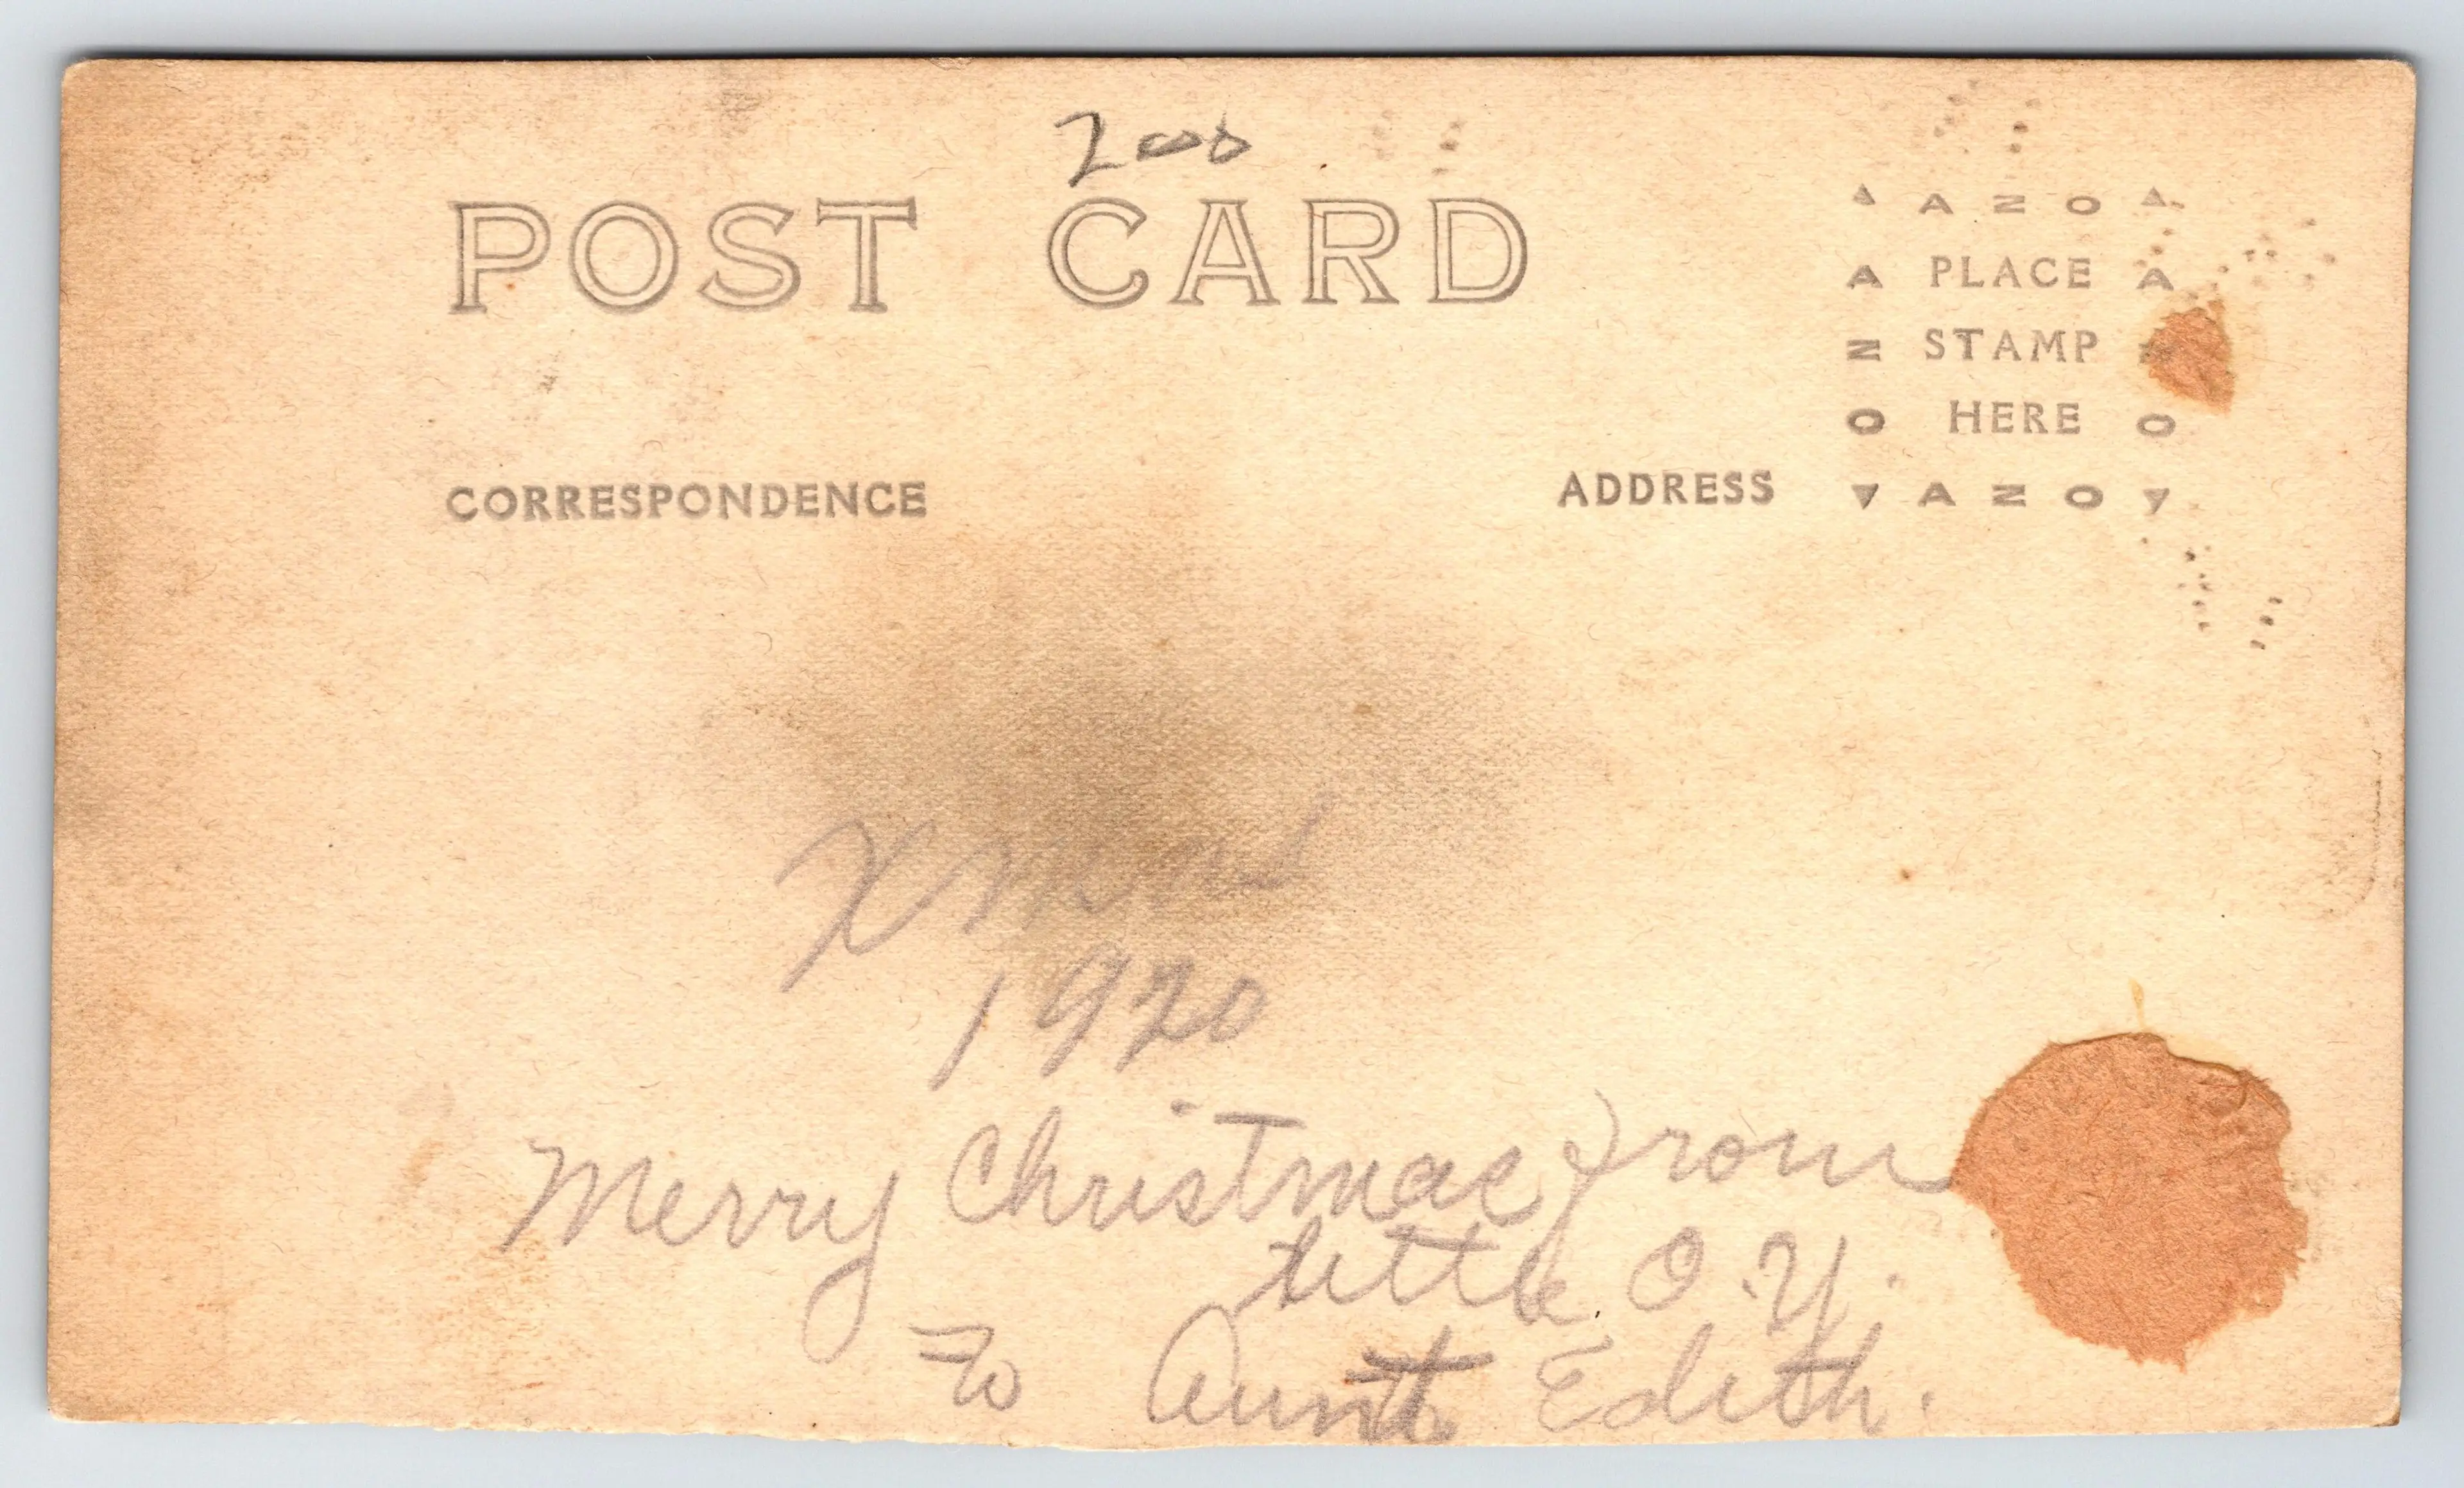 200
POST CARD
▲ A Z O ▲
A PLACE A
Z STAMP Z
O HERE O
▼ A Z O ▼
CORRESPONDENCE
ADDRESS
Xmas
1920
Merry Christmas from
little O.Y.
To Aunt Edith.